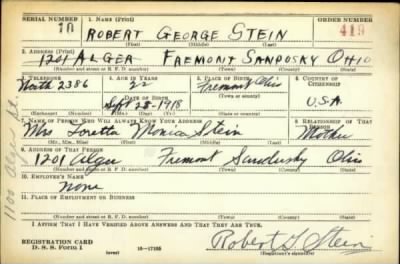 SERIAL NUMBER 1. NAME (Print) ORDER NUMBER
10 ROBERT GEORGE STEIN 419
(First) (Middle) (Last)
2. ADDRESS (Print)
1201 ALGER FREMONT SANDUSKY OHIO
(Number and street or R. F. D. number) (Town) (County) (State)
3. TELEPHONE 4. AGE IN YEARS 5. PLACE OF BIRTH 6. COUNTRY OF CITIZENSHIP
North 2386 22 Fremont Ohio
DATE OF BIRTH (Town or county)
Sept 28-1918 U.S.A.
(Exchange) (Number) (Mo.) (Day) (Yr.) (State or country)
7. NAME OF PERSON WHO WILL ALWAYS KNOW YOUR ADDRESS 8. RELATIONSHIP OF THAT PERSON
Mrs Loretta Monica Stein Mother
(Mr., Mrs., Miss) (First) (Middle) (Last)
9. ADDRESS OF THAT PERSON
1201 Alger Fremont Sandusky Ohio
(Number and street or R. F. D. number) (Town) (County) (State)
10. EMPLOYER'S NAME
None
11. PLACE OF EMPLOYMENT OR BUSINESS
(Number and street or R. F. D. number) (Town) (County) (State)
I AFFIRM THAT I HAVE VERIFIED ABOVE ANSWERS AND THAT THEY ARE TRUE.
REGISTRATION CARD
D. S. S. Form 1 (over) 16-17105
Robert G Stein
(Registrant's signature)